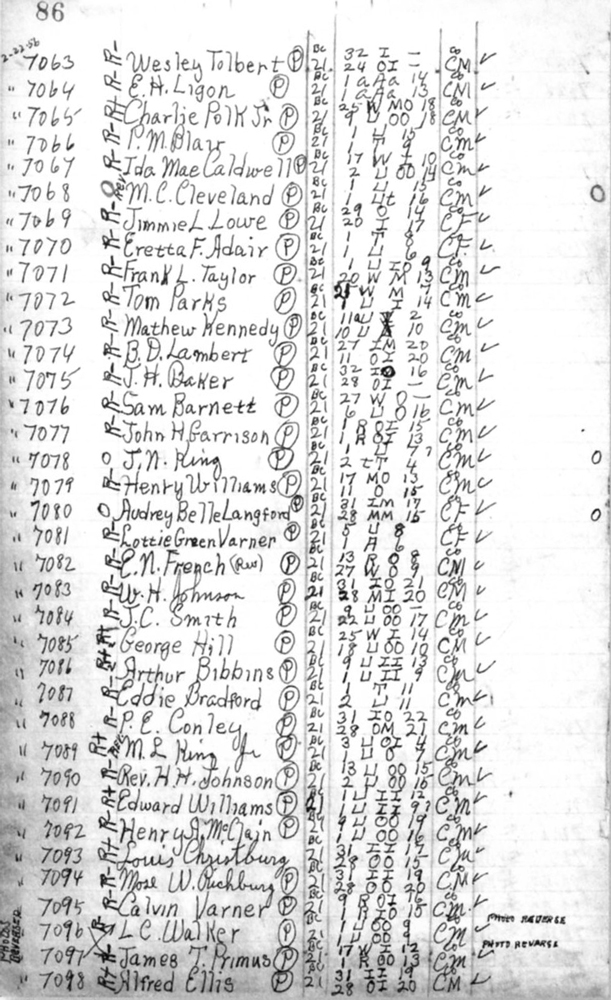 86
2-22-56
7063 R- Wesley Tolbert P BC 21 32 I - 24 OI - CO CM
" 7064 R- E.H. Ligon P BC 21 1 aAa 14 1 aAa 13 CO CM
" 7065 R+ Charlie Polk Jr P BC 21 25 W MO 18 9 U OO 18 CO CM
" 7066 R- P.M. Blair P BC 21 1 U 15 1 T 9 CO CM
" 7067 R- Ida Mae Caldwell P BC 21 17 W I 10 2 U OO 14 CO CM
" 7068 O M.C. Cleveland P BC 21 1 U 15 1 Ut 16 CO CM O
" 7069 R- Jimmie L Lowe P BC 21 29 O 14 20 I 17 CO CF
" 7070 R- Eretta F. Adair P BC 21 1 T 8 1 U 6 CO CF
" 7071 R- Frank L. Taylor P BC 21 1 U IO 9 20 W M 13 CO CM
" 7072 R- Tom Parks P BC 21 W M 7 1 U I 14 CO CM
" 7073 R- Mathew Kennedy P BC 21 11 U 2 10 U 10 CO CM
" 7074 R- B.D. Lambert P BC 21 27 IM 20 11 OI 20 CO CM
" 7075 R- J.H. Baker P BC 21 32 IO 16 28 OI - CO CM
" 7076 R- Sam Barnett P BC 21 27 W O - 6 U O 16 CO CM
" 7077 R- John H. Garrison P BC 21 1 R OI 15 1 R OI 13 CO CM
" 7078 O J.N. King P BC 21 1 U 7? 2 tT 4 CO CM O
" 7079 R- Henry Williams P BC 21 17 MO 13 11 O 15 CO CM
" 7080 O Audrey Belle Langford P BC 21 31 IM 17 28 MM 15 CO CF O
" 7081 R- Lottie Green Varner P BC 21 1 U 8 1 A 6 CO CF
" 7082 R- E.N. French (Rev) P BC 21 13 R O 8 27 W O 9 CO CM
" 7083 R- W.H. Johnson P BC 21 31 IO 21 28 MI 20 CO CM
" 7084 R- J.C. Smith P BC 21 9 U OO - 22 U OO 17 CO CM
" 7085 R+ George Hill P BC 21 25 W I 14 18 U OO 10 CO CM
" 7086 R+ Arthur Bibbins P BC 21 9 U II 13 1 U II 9 CO CM
" 7087 R- Eddie Bradford P BC 21 1 T 11 2 U 11 CO CM
" 7088 R- P.E. Conley P BC 21 31 IO 22 28 OM 21 CO CM
" 7089 R+ M.L King Jr P BC 21 3 U OI 4 1 U O 7 CO CM
" 7090 R- Rev. H.H. Johnson P BC 21 13 U OO 15 2 U OO 16 CO CM
" 7091 R+ Edward Williams P BC 21 1 U II 12 1 U II 9? CO CM
" 7092 R+ Henry A. McClain P BC 21 9 U OO 19 1 U OO 16 CO CM
" 7093 R+ Louis Christburg BC 21 31 II 17 28 OO 15 CO CM
" 7094 R- Mose W. Puchburg P BC 21 31 II 19 28 OO 20 CO CM
7095 R- Calvin Varner P BC 21 9 R OI 16 1 R IO 15 CO CM
PHOTO REVERSE
PHOTOS REVERSED
" 7096 R- L C. Walker P BC 21 1 U OO 9 1 U OO 9 CO CM
PHOTO REVARSE
" 7097 R+ James T. Primus P BC 21 17 W I 12 1 R OO 13 CO CM
" 7098 R+ Alfred Ellis P BC 21 31 II 19 28 OI 20 CO CM